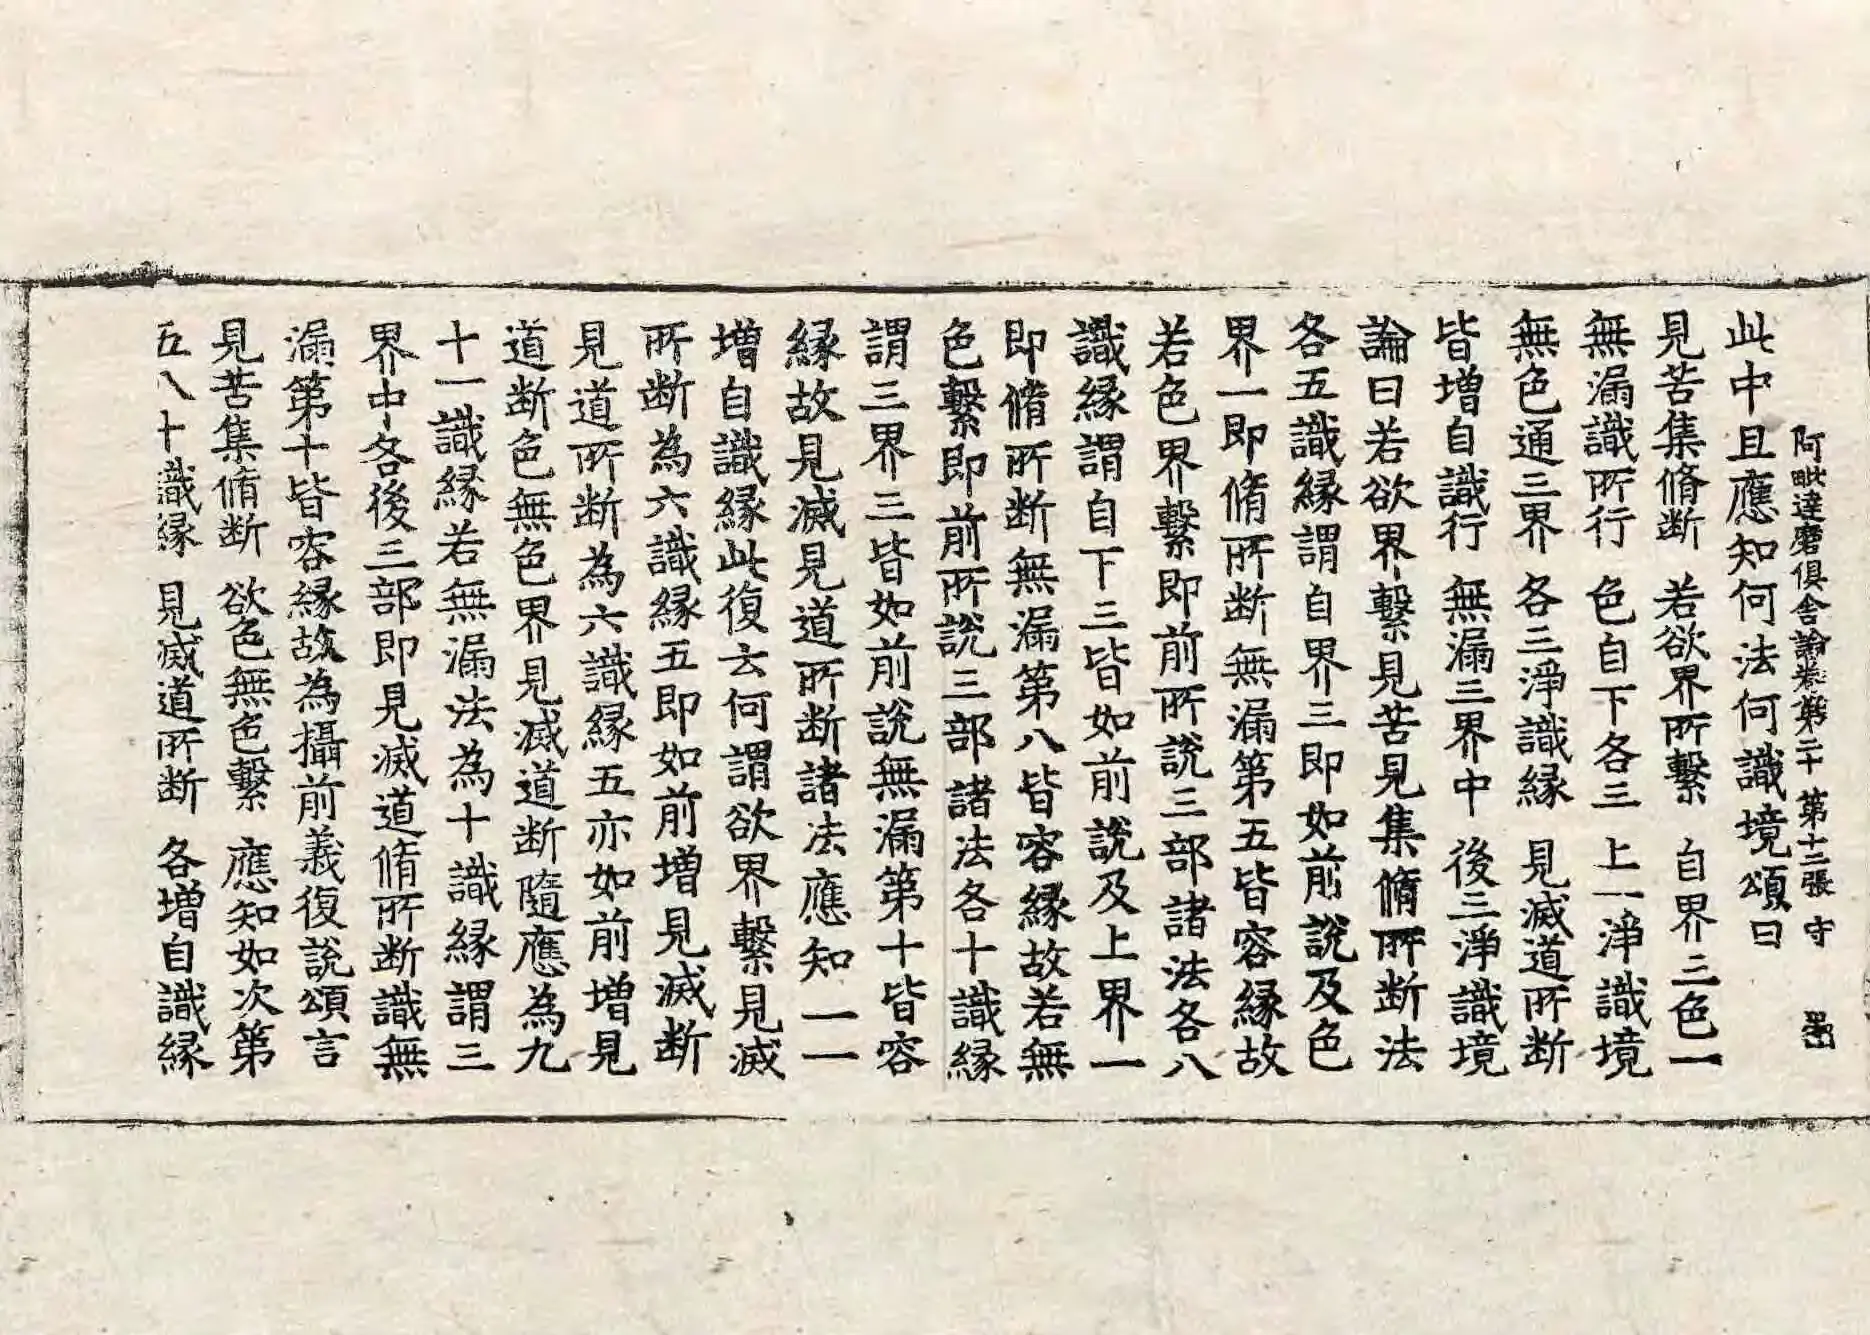 此中且應知何法何識境頌曰
阿毗達磨俱舍論卷第二十 第十二張 守
見苦集脩断 若欲界所繫 自界三色一
無漏識所行 色自下各三 上一淨識境
無色通三界 各三淨識緣 見滅道所断
皆增自識行 無漏三界中 後三淨識境
論曰若欲界繫見苦見集脩所断法
各五識緣謂自界三即如前說及色
界一即脩所断無漏第五皆容緣故
若色界繫即前所說三部諸法各八
識緣謂自下三皆如前說及上界一
即脩所断無漏第八皆容緣故若無
色繫即前所說三部諸法各十識緣
謂三界三皆如前說無漏第十皆容
緣故見滅見道所断諸法應知一一
增自識緣此復云何謂欲界繫見滅
所断為六識緣五即如前增見滅断
見道所断為六識緣五亦如前增見
道断色無色界見滅道断隨應為九
十一識緣若無漏法為十識緣謂三
界中各後三部即見滅道脩所断識無
漏第十皆容緣故為攝前義復說頌言
見苦集脩断 欲色無色繫 應知如次第
五八十識緣 見滅道所断 各增自識緣